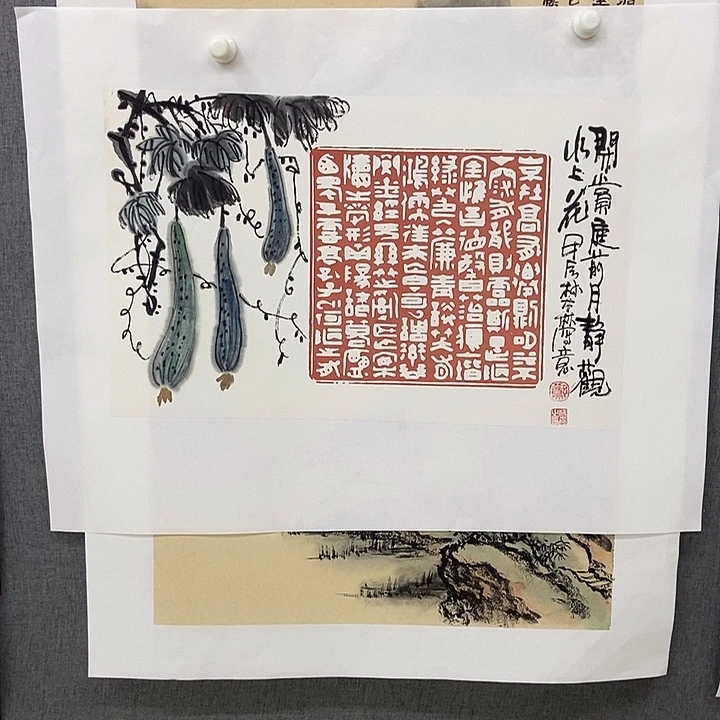 閑齋庭前月靜觀
水上花
山不在高有仙則名水
不在深有龍則靈斯是陋
室惟吾德馨苔痕上階
綠草色入簾青談笑有
鴻儒往來無白丁可以調
素琴閱金經無絲竹之亂耳無案
牘之勞形南陽諸葛廬
西蜀子雲亭孔子云何陋之有